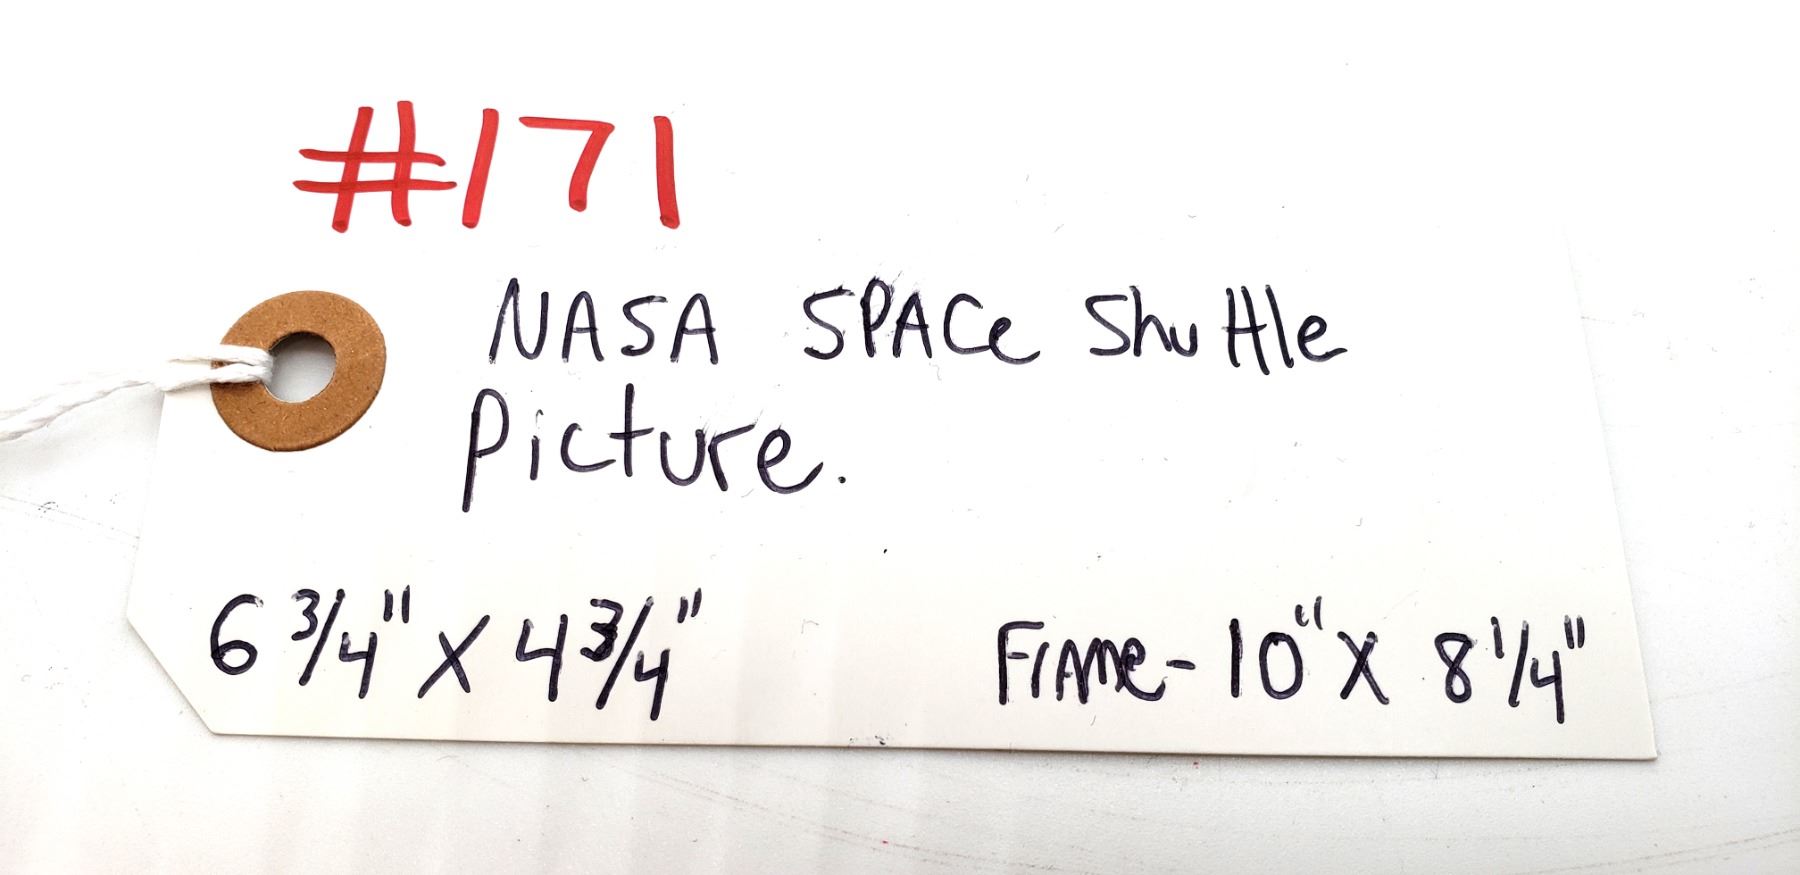 #171
NASA SPACe Shuttle
Picture.
6 3/4" X 4 3/4" Frame- 10" X 8 1/4"